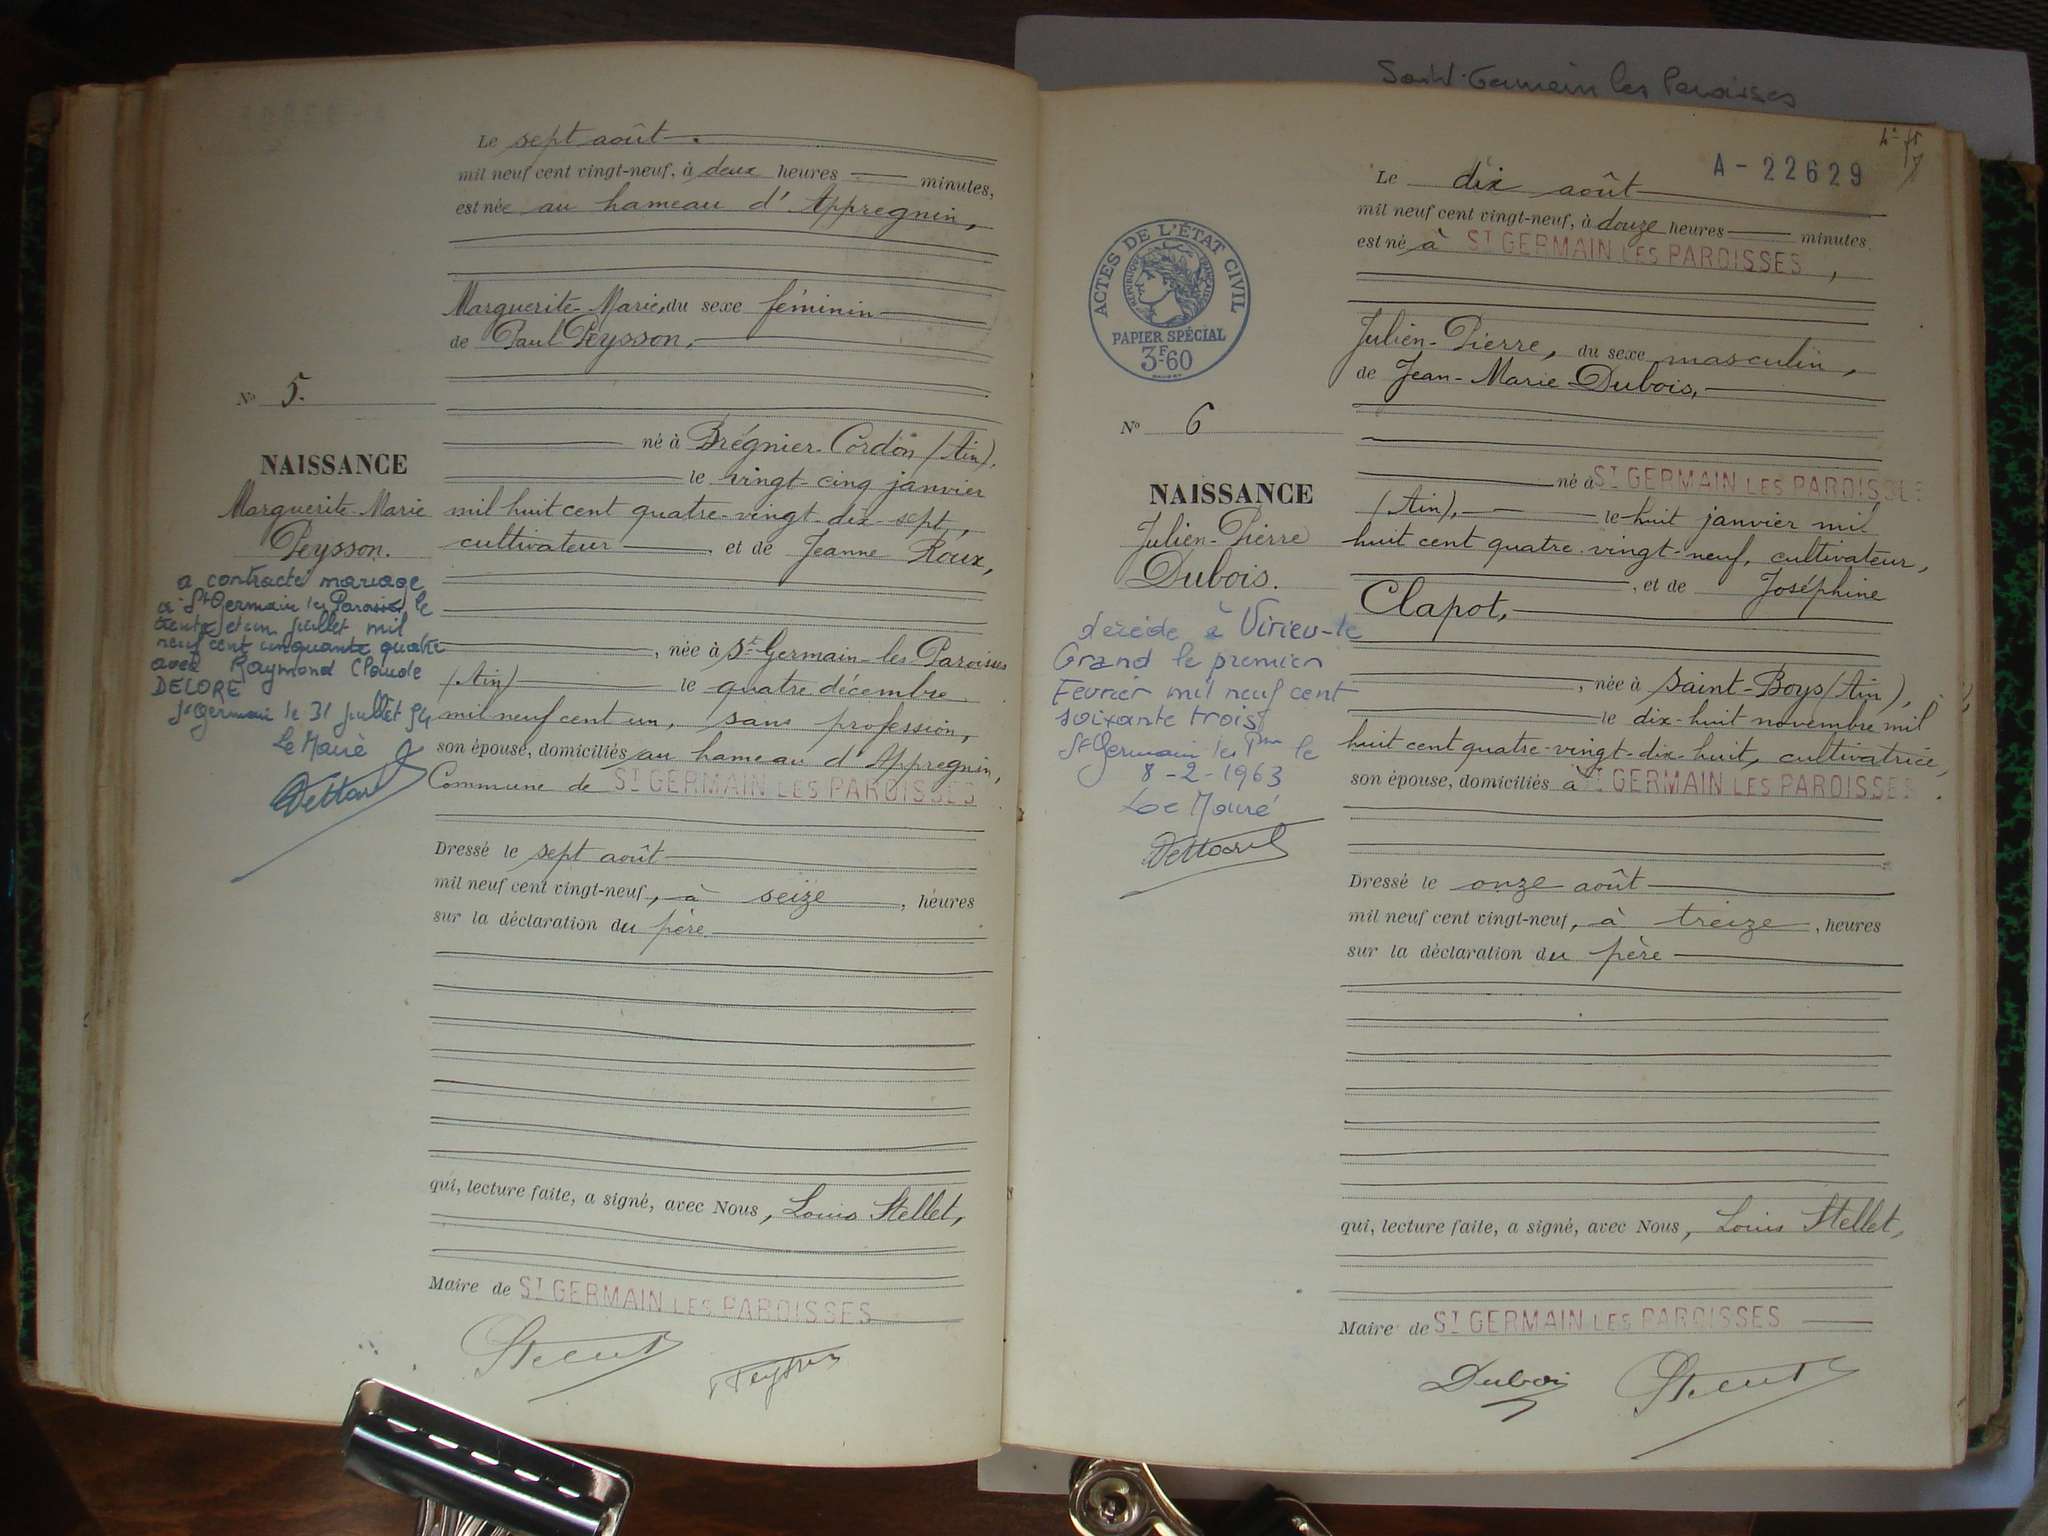 Saint-Germain les Paroisses
Le sept août
mil neuf cent vingt-neuf, à deux heures minutes,
est née au hameau d'Appregnin,
Marguerite-Marie, du sexe féminin
de Paul Peysson,
No 5.
né à Brégnier-Cordon (Ain),
le vingt-cinq janvier
NAISSANCE
Marguerite-Marie
Peysson.
mil huit cent quatre-vingt-dix-sept,
cultivateur et de Jeanne Roux,
a contracté mariage
a St Germain les Paroisses, le
trente et un juillet mil
neuf cent cinquante quatre
avec Raymond Claude
DELORE
St Germain le 31 juillet 54
Le Maire
, née à St-Germain-les-Paroisses
(Ain) le quatre décembre
mil neuf cent un, sans profession,
son épouse, domiciliés au hameau d'Appregnin,
Commune de ST GERMAIN LES PAROISSES
Dressé le sept août
mil neuf cent vingt-neuf, à seize, heures
sur la déclaration du père
qui, lecture faite, a signé, avec Nous, Louis Stellet,
Maire de ST GERMAIN LES PAROISSES
Peysson
A-22629
Le dix août
mil neuf cent vingt-neuf, à douze heures minutes
est né à ST GERMAIN LES PAROISSES,
ACTES DE L'ÉTAT CIVIL
RÉPUBLIQUE FRANÇAISE
PAPIER SPÉCIAL
3F60
Julien-Pierre, du sexe masculin,
de Jean-Marie Dubois,
No 6
né à ST GERMAIN LES PAROISSES
NAISSANCE
Julien-Pierre
Dubois.
(Ain), le huit janvier mil
huit cent quatre-vingt-neuf, cultivateur,
, et de Joséphine
Clapot,
décédé à Virieu-le
Grand le premier
Février mil neuf cent
soixante trois
St Germain les Pses le
8-2-1963
Le Maire
, née à Saint-Boys (Ain),
le dix-huit novembre mil
huit cent quatre-vingt-dix-huit, cultivatrice,
son épouse, domiciliés à ST GERMAIN LES PAROISSES.
Dressé le onze août
mil neuf cent vingt-neuf, à treize, heures
sur la déclaration du père
qui, lecture faite, a signé, avec Nous, Louis Stellet,
Maire de ST GERMAIN LES PAROISSES
Dubois